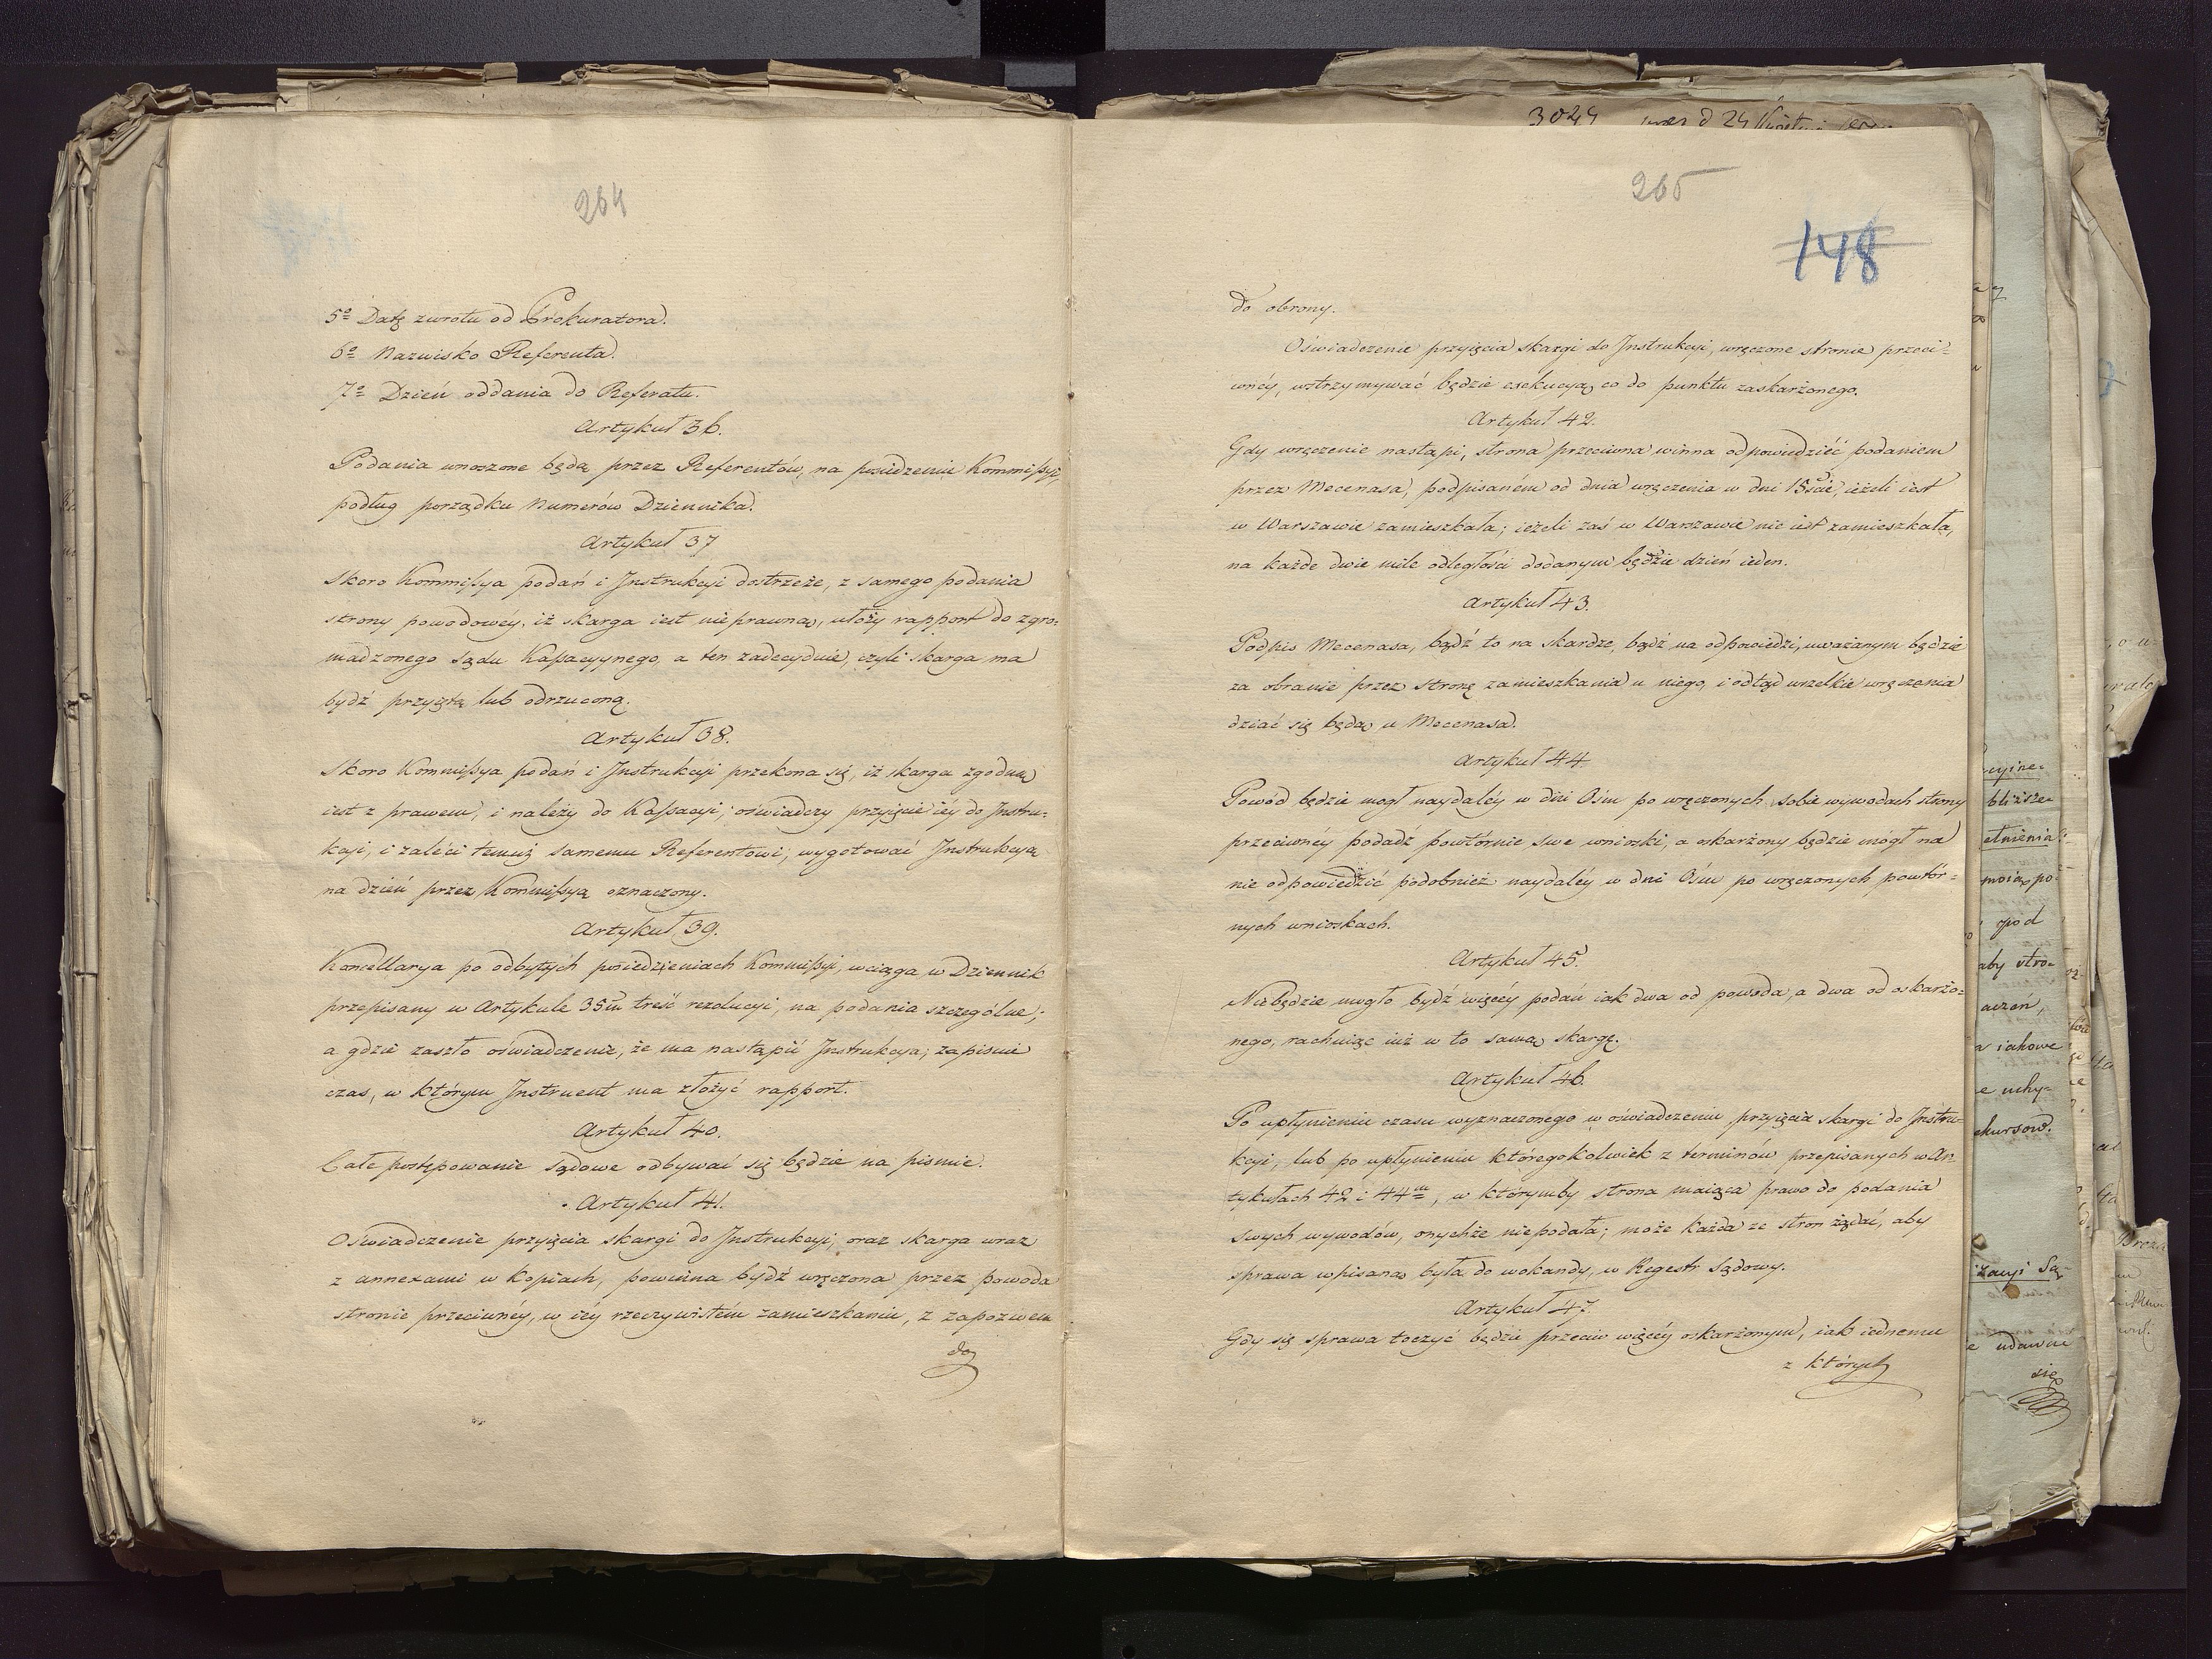 264
5º Datę zwrotu od Prokuratora.
6º Nazwisko Referenta.
7º Dzień oddania do Referatu.
Artykuł 36.
Podania wnoszone będą przez Referentów, na posiedzeniu Kommissyi,
podług porządku Numerów Dziennika.
Artykuł 37
Skoro Kommissya podań i Instrukcyi dostrzeże, z samego podania
strony powodowéy, iż skarga iest nieprawną, ułoży rapport do zgro-
madzonego Sądu Kassacyynego, a ten zadecyduie, czyli skarga ma
bydź przyięta lub odrzuconą.
Artykuł 38.
Skoro Kommissya podań i Instrukcyi przekona się, iż skarga zgodną
iest z prawem, i należy do Kassacyi; oświadczy przyięcie iéy do Instru-
kcyi, i zaléci temuż samemu Referentowi, wygotować Instrukcyą
na dzień przez Kommissyą oznaczony.
Artykuł 39.
Kancellarya po odbytych posiedzieniach Kommissyi, wciąga w Dziennik
przepisany w Artykule 35m treść rezolucyi, na podania szczególne;
a gdzie zaszło oświadczenie, że ma nastąpić Instrukcya; zapisuie
czas, w którym Instruent ma złożyć rapport.
Artykuł 40.
Całe postępowanie Sądowe odbywać się będzie na piśmie.
Artykuł 41.
Oświadczenie przyięcia skargi do Instrukcyi, oraz skarga wraz
z annexami w Kopiach, powinna bydź wręczona przez powoda
stronie przeciwnéy, w iéy rzeczywistém zamieszkaniu, z zapozwem
do
265
148
do obrony.
Oświadczenie przyięcia skargi do Instrukcyi, wręczone stronie przeci-
wnéy, wstrzymywać będzie exekucyą, co do punktu zaskarżonego.
Artykuł 42.
Gdy wręczenie nastąpi, strona przeciwna winna odpowiedziéć podaniem
przez Mecenasa, podpisaném od dnia wręczenia w dni 15ście, ieżeli iest
w Warszawie zamieszkała; ieżeli zaś w Warszawie nie iest zamieszkałą,
na każde dwie mile odległości dodanym będzie dzień ieden.
Artykuł 43.
Podpis Mecenasa, bądź to na skardze, bądź na odpowiedzi, uważanym będzie
za obranie przez stronę zamieszkania u niego, i odtąd wszelkie wręczenia
dziać się będą u Mecenasa.
Artykuł 44
Powód będzie mógł naydaléy w dni Ośm po wręczonych sobie wywodach strony
przeciwnéy podadź powtórnie swe wnioski, a oskarżony będzie mógł na
nie odpowiedzić podobnież naydaléy w dni Ośm po wręczonych powtór-
nych wnioskach.
Artykuł 45.
Niebędzie mogło bydź więcéy podań iak dwa od powoda, a dwa od oskarżo-
nego, rachuiąc iuż w to samą skargę.
Artykuł 46.
Po upłynieniu czasu wyznaczonego w oświadczeniu przyięcia skargi do Instru-
kcyi, lub po upłynieniu któregokolwiek z terminów przepisanych w Ar-
tykułach 42 i 44m, w którymby strona maiąca prawo do podania
swych wywodów, onychże niepodała; może każda ze stron żądać, aby
sprawa wpisaną była do wokandy, w Regestr Sądowy.
Artykuł 47.
Gdy się sprawa toczyć będzie przeciw więcéy oskarżonym, iak iednemu
z których
3024
d 24
bliższe
pod
aby stro-
iakowe
e uchy-
ekursow.
się